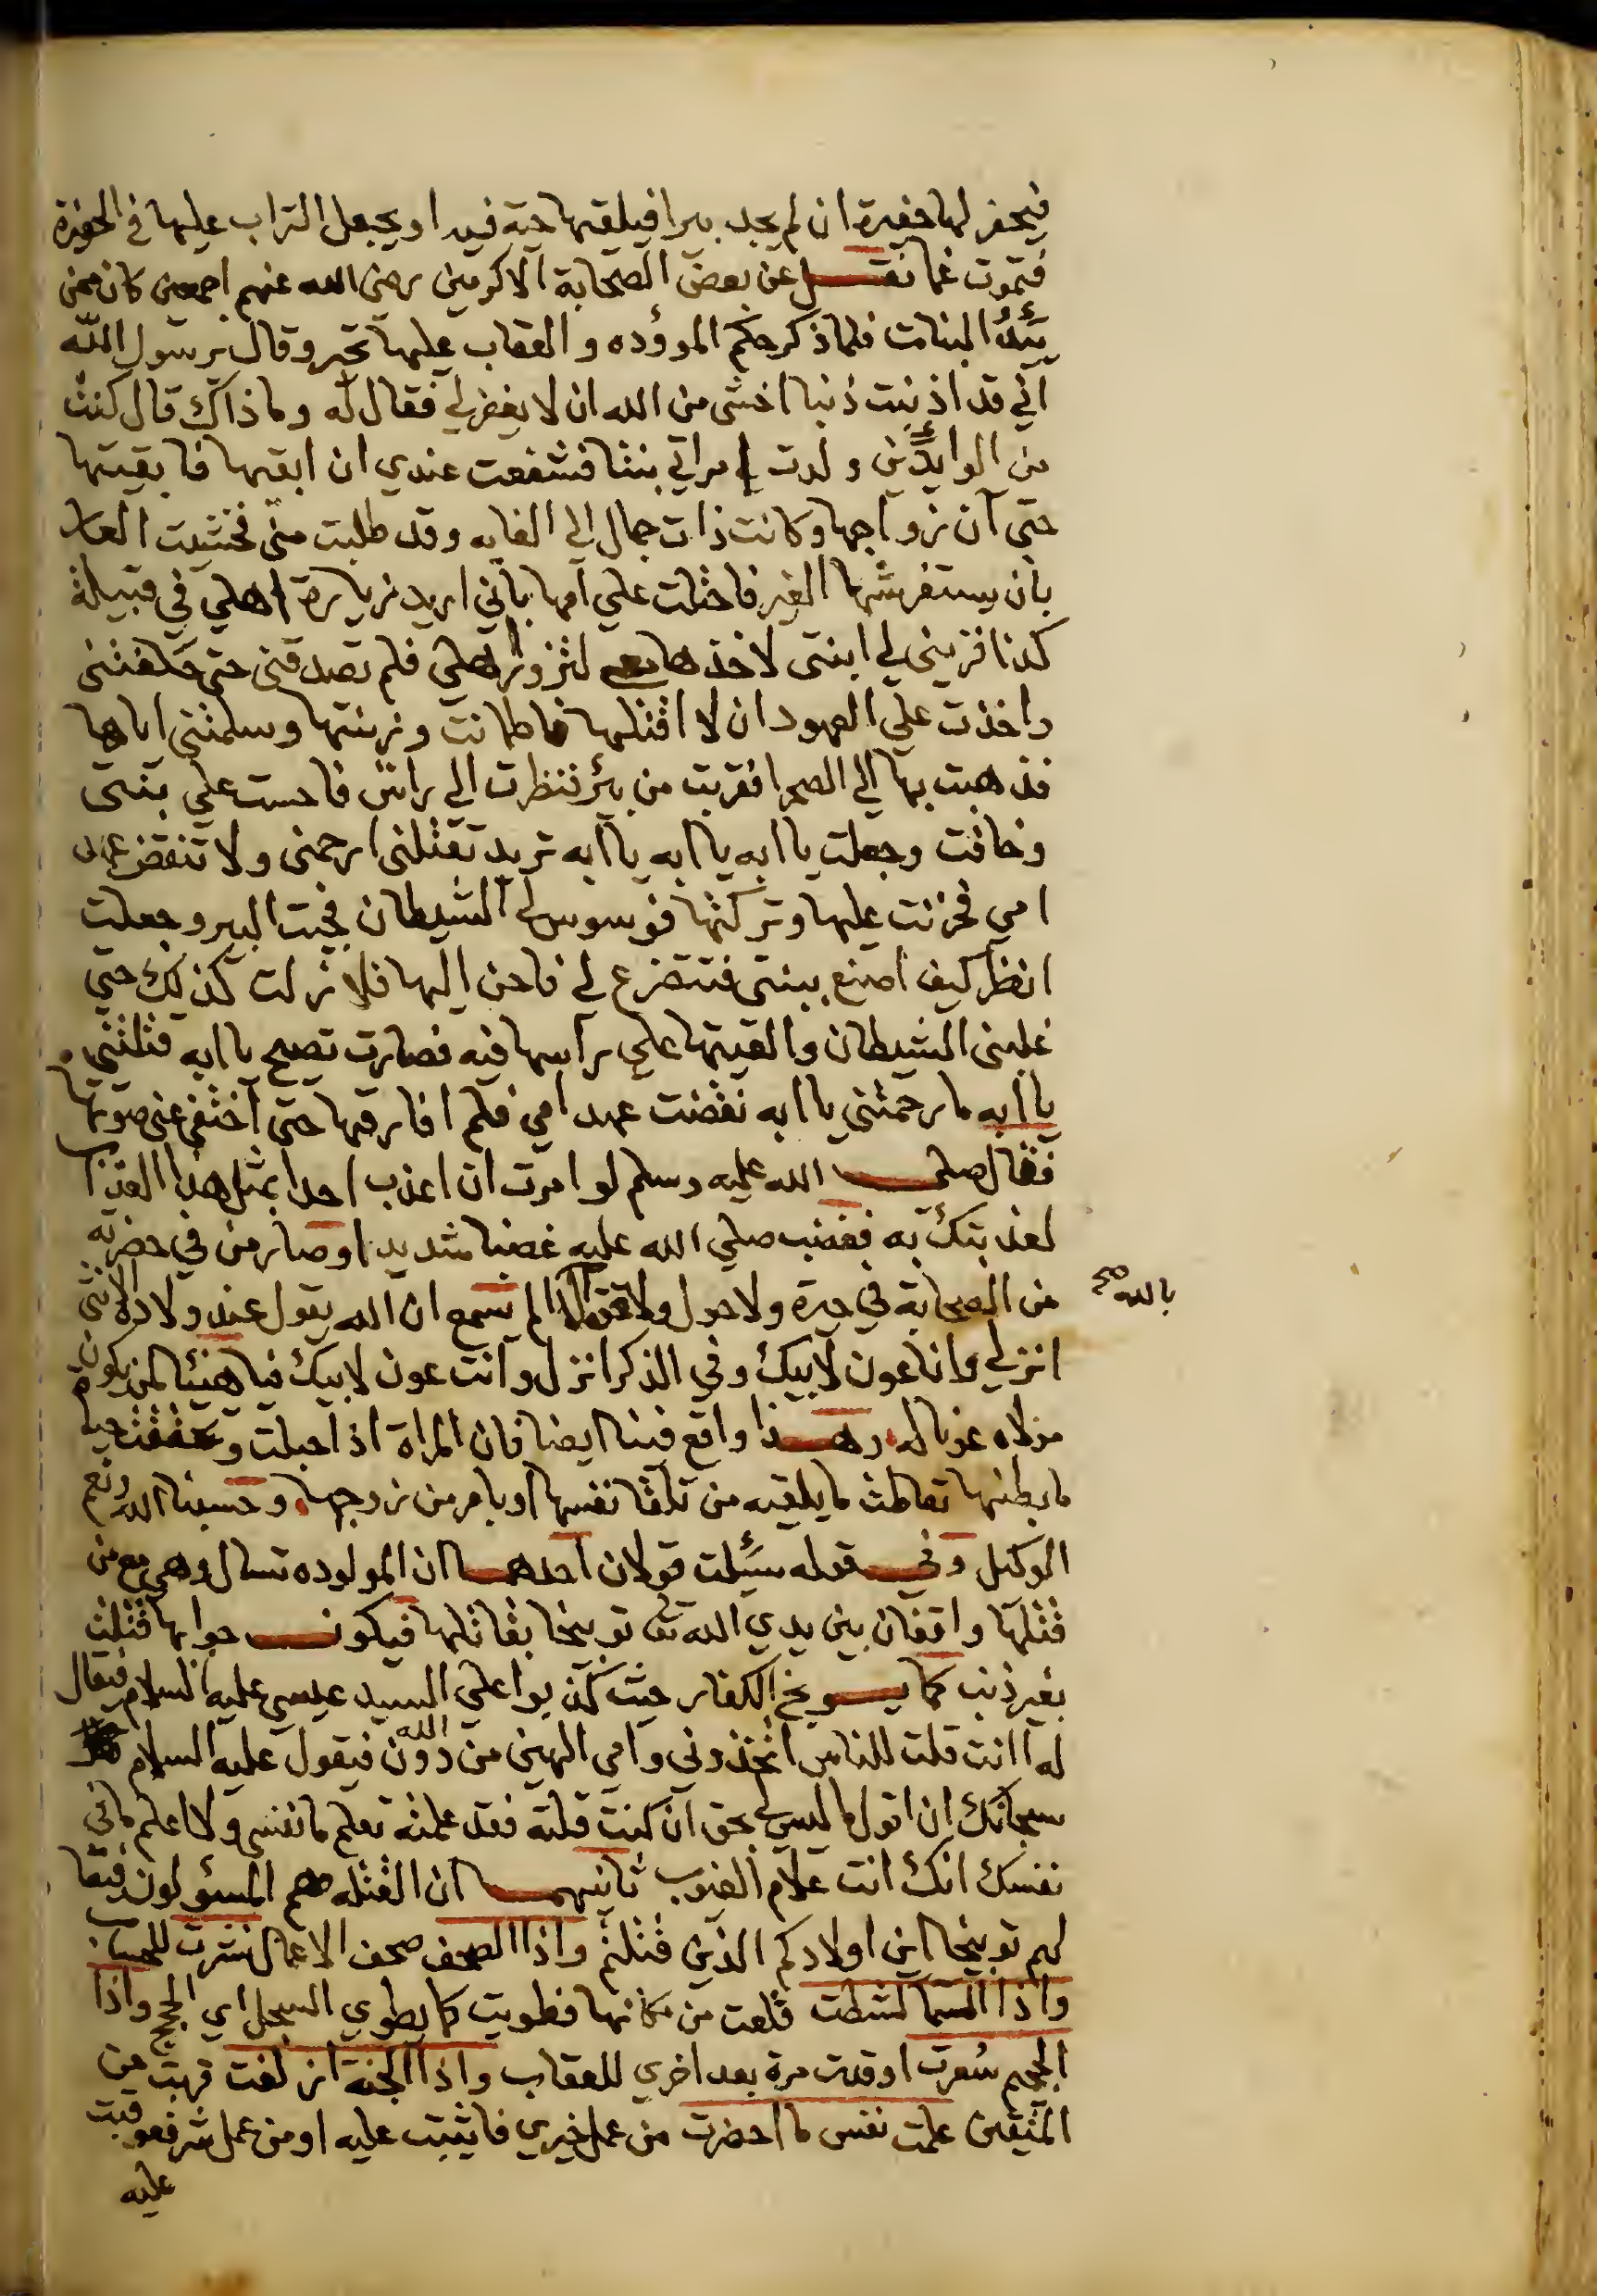 فيحفر لها حفيرة ان لم يجد بيرا فيلقيها حية فيه او يجعل التراب عليها في الحفرة
فتموت غما نقل عن بعض الصحابة الاكرمين رضي الله عنهم اجمعين كان ممن
يَئِدُ البنات فلما ذكر حكم الموؤده والعقاب عليها تحير وقال يرسول الله
اني قد اذنبت ذنبا اخشى من الله ان لا يغفر لي فقال له وما ذاك قال كنت
من الوايدين ولدت امراتي بنتا فشفعت عندي ان ابقها فابقيتها
حتى آن زواجها وكانت ذات جمال الى الغايه وقد طلبت منى فخشيت العار
بان يستفرشها الغير فاحتلت علي امها باني اريد زيارة اهلي في قبيلة
كذا فزيني لي ابنتى لاخذها معي لتزور اهلي فلم تصدقنى حتى حلفتنى
واخذت علي العهود ان لا اقتلها فاطمانت وزينتها وسلمتنى اياها
فذهبت بها الي الصحرا فقربت من بئر فنظرت الي راسى فاحست علي بنتى
وخافت وجعلت يا ابه يا ابه يا ابه تريد تقتلنى ارحمنى ولا تنقض عهد
امي فحزنت عليها وتركتها فوسوس لي الشيطان فجيت البير وجعلت
انظر كيف اصنع ببنتى فتتضرع لي فاحن اليها فلا زلت كذلك حتي
غلبنى الشيطان والقيتها علي راسها فيه فصارت تصيح يا ابه قتلتنى
يا ابه ما رحمتنى يا ابه نقضت عهد امي فلم افارقها حتى اختفى عنى صوتها
فقال صلى الله عليه وسلم لو امرت ان اعذب احدا بمثل هذا العذاب
لعذبتك به فغضب صلي الله عليه غضبا شديدا وصار من في حضرته
من الصحابة في حيرة ولا حول ولا قوة الا الم تسمع ان الله يقول عند ولادة الانثى
بالله صح
انزلي وانا عون لابيك وفي الذكر انزل وانت عون لابيك فيا هنيئا لمن يكون
مولاه عونا له وهذا واقع فينا ايضا فان المراة اذا حبلت وتحققت حيا
ما بطنها تعاطت ما يلقيه من تلقا نفسها او بامر من زوجها وحسبنا الله ونعم
الوكيل وفي قوله سئلت قولان احدهما ان المولوده تسال وهي مع من
قتلها واقفان بين يدي الله تع توبيخا بقاتلها فيكون جوابها قتلت
بغير ذنب كما يوبخ الكفار حيث كذبوا علي السيد عيسي عليه السلام فيقال
له اانت قلت للناس اتخذوني وامي الهين من دون الله فيقول عليه السلام
سبحانك ان اقول ما ليس لي بحق ان كنت قلته فقد علمته تعلم ما نفسى ولا اعلم ما في
نفسك انك انت علام الغيوب ثانيهما ان القتله هم المسؤلون فيقا
لهم توبيخا اين اولادكم الذين قتلتم واذا الصحف صحف الاعمال نشرت للحساب
واذا السما كشطت قلعت من مكانها فطويت كما يطوي السجل اي الحجج واذا
الجحيم سُعرت اوقدت مرة بعد اخري للعقاب واذا الجنة ازلفت قربت من
المتقين علمت نفس ما احضرت من عمل خيري فايثبت عليه او من عمل شر فعوقبت
عليه